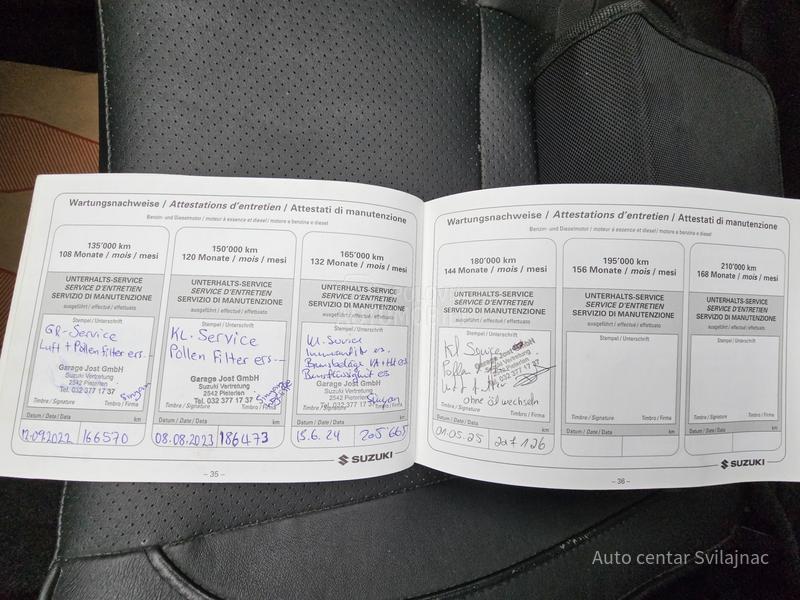 Wartungsnachweise / Attestations d'entretien / Attestati di manutenzione
Benzin- und Dieselmotor / moteur à essence et diesel / motore a benzina e diesel
135'000 km
108 Monate / mois / mesi
UNTERHALTS-SERVICE
SERVICE D'ENTRETIEN
SERVIZIO DI MANUTENZIONE
ausgeführt / effectué / effettuato
Stempel / Unterschrift
GR-Service
Luft + Pollenfilter ers.
Garage Jost GmbH
Suzuki Vertretung
2542 Pieterlen
Tel. 032 377 17 37
Timbre / Signature Timbro / Firma
Datum / Date / Data km
12.09.2022 166570
150'000 km
120 Monate / mois / mesi
UNTERHALTS-SERVICE
SERVICE D'ENTRETIEN
SERVIZIO DI MANUTENZIONE
ausgeführt / effectué / effettuato
Stempel / Unterschrift
KL. Service
Pollen Filter ers.
Garage Jost GmbH
Suzuki Vertretung
2542 Pieterlen
Tel. 032 377 17 37
Timbre / Signature Timbro / Firma
Datum / Date / Data km
08.08.2023 186473
165'000 km
132 Monate / mois / mesi
UNTERHALTS-SERVICE
SERVICE D'ENTRETIEN
SERVIZIO DI MANUTENZIONE
ausgeführt / effectué / effettuato
Stempel / Unterschrift
Kl. Service
Garage Jost GmbH
Suzuki Vertretung
2542 Pieterlen
Tel. 032 377 17 37
Timbre / Signature
Datum / Date / Data km
13.6.24 205'665
SUZUKI
– 35 –
Wartungsnachweise / Attestations d'entretien / Attestati di manutenzione
Benzin- und Dieselmotor / moteur à essence et diesel / motore a benzina e diesel
180'000 km
144 Monate / mois / mesi
UNTERHALTS-SERVICE
SERVICE D'ENTRETIEN
SERVIZIO DI MANUTENZIONE
ausgeführt / effectué / effettuato
Stempel / Unterschrift
Kl Service
Pollen
ohne öl wechseln
Timbre / Signature Timbro / Firma
Datum / Date / Data km
01.05.25
195'000 km
156 Monate / mois / mesi
UNTERHALTS-SERVICE
SERVICE D'ENTRETIEN
SERVIZIO DI MANUTENZIONE
ausgeführt / effectué / effettuato
Stempel / Unterschrift
Timbre / Signature Timbro / Firma
Datum / Date / Data km
210'000 km
168 Monate / mois / mesi
UNTERHALTS-SERVICE
SERVICE D'ENTRETIEN
SERVIZIO DI MANUTENZIONE
ausgeführt / effectué / effettuato
Stempel / Unterschrift
Timbre / Signature Timbro / Firma
Datum / Date / Data km
SUZUKI
– 36 –
Auto centar Svilajnac